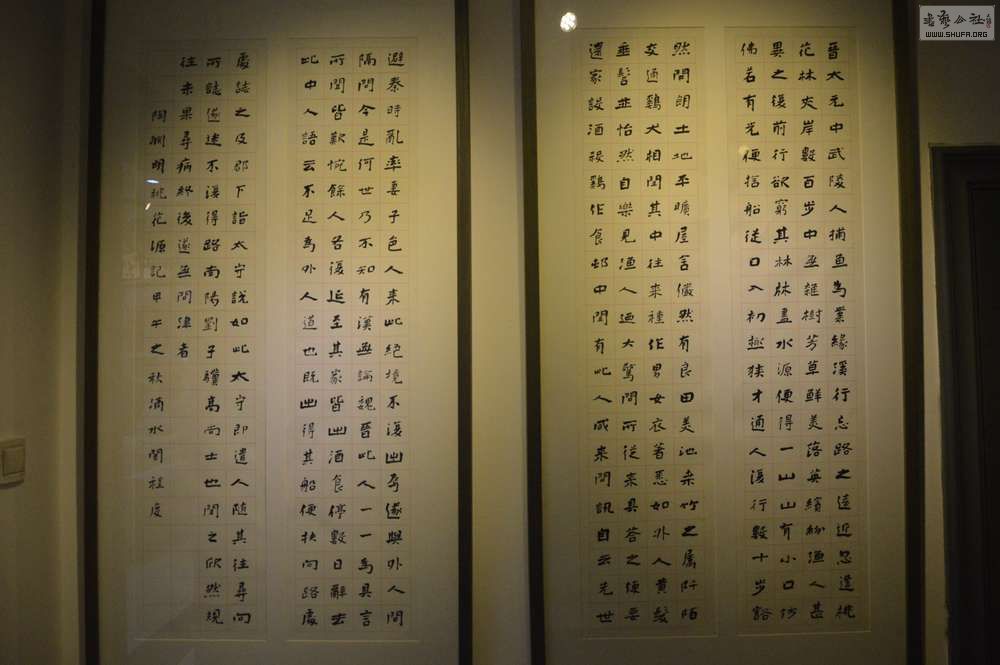 晉太元中武陵人捕魚為業緣溪行忘路之遠近忽逢桃
花林夾岸數百步中無雜樹芳草鮮美落英繽紛漁人甚
異之復前行欲窮其林林盡水源便得一山山有小口彷
佛若有光便捨船從口入初極狹才通人復行數十步豁
然開朗土地平曠屋舍儼然有良田美池桑竹之屬阡陌
交通鷄犬相聞其中往來種作男女衣著悉如外人黃髮
垂髫並怡然自樂見漁人迺大驚問所從來具答之便要
還家設酒殺鷄作食邨中聞有此人咸來問訊自云先世
避秦時亂率妻子邑人來此絕境不復出焉遂與外人間
隔問今是何世乃不知有漢無論魏晉此人一一為具言
所聞皆歎惋餘人各復延至其家皆出酒食停數日辭去
此中人語云不足為外人道也既出得其船便扶向路處
處誌之及郡下詣太守說如此太守即遣人隨其往尋向
所誌遂迷不復得路南陽劉子驥高尚士也聞之欣然規
往未果尋病終後遂無問津者
陶淵明桃花源記甲午之秋
書藝公社
WWW.SHUFA.ORG